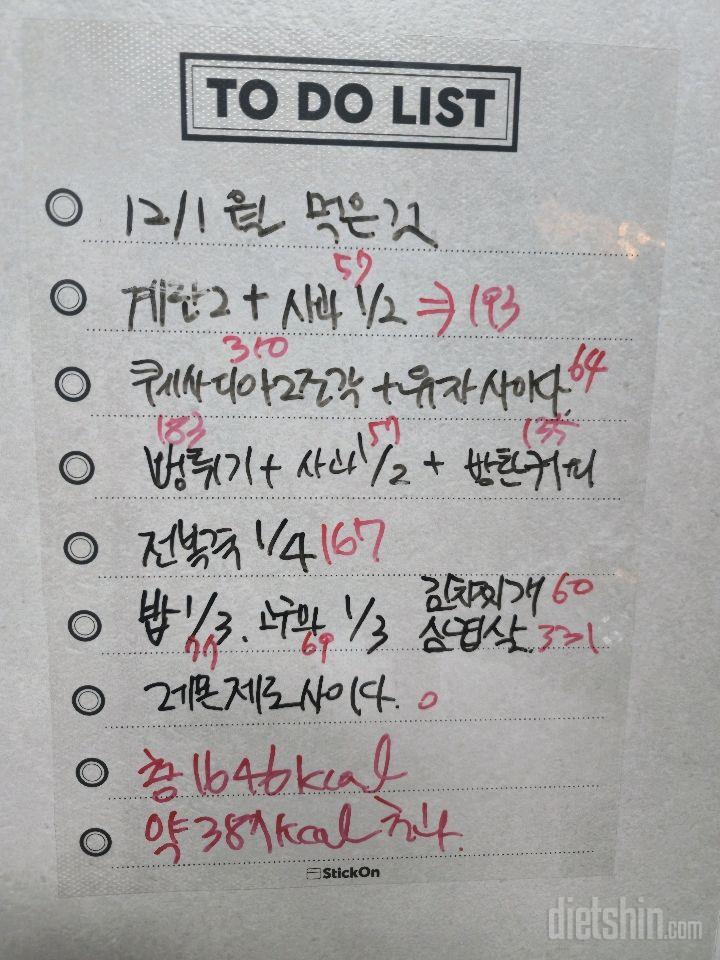 TO DO LIST
12/1 월 먹은것
57
계란2 + 사과 1/2 ⇒ 193
310 64
퀘사디아2조각 + 유자사이다.
183 57 135
뻥튀기 + 사과 1/2 + 방탄커피
전복죽 1/4 167
김치찌개 60
밥 1/3. 고구마 1/3 삼겹살. 331
77 69
레몬제로사이다. 0
총 1646kcal
약 387kcal 초과.
StickOn
dietshin.com